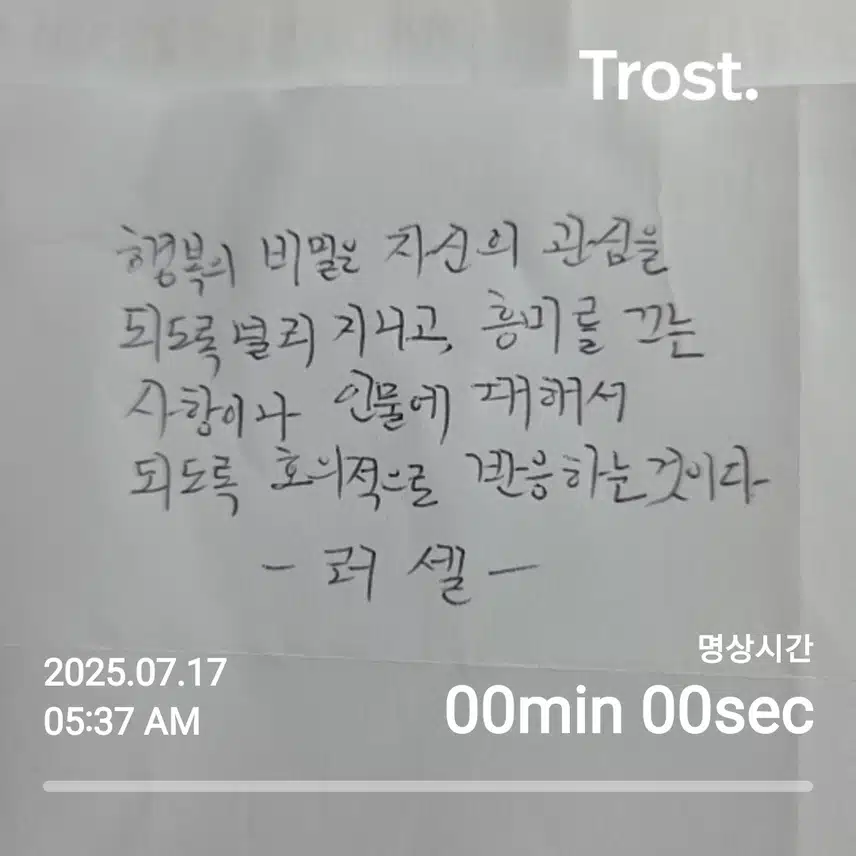 Trost.
행복의 비밀은 자신의 관심을
되도록 널리 지니고, 흥미를 끄는
사항이나 인물에 대해서
되도록 호의적으로 반응하는 것이다
- 러셀 -
명상시간
2025.07.17
00min 00sec
05:37 AM